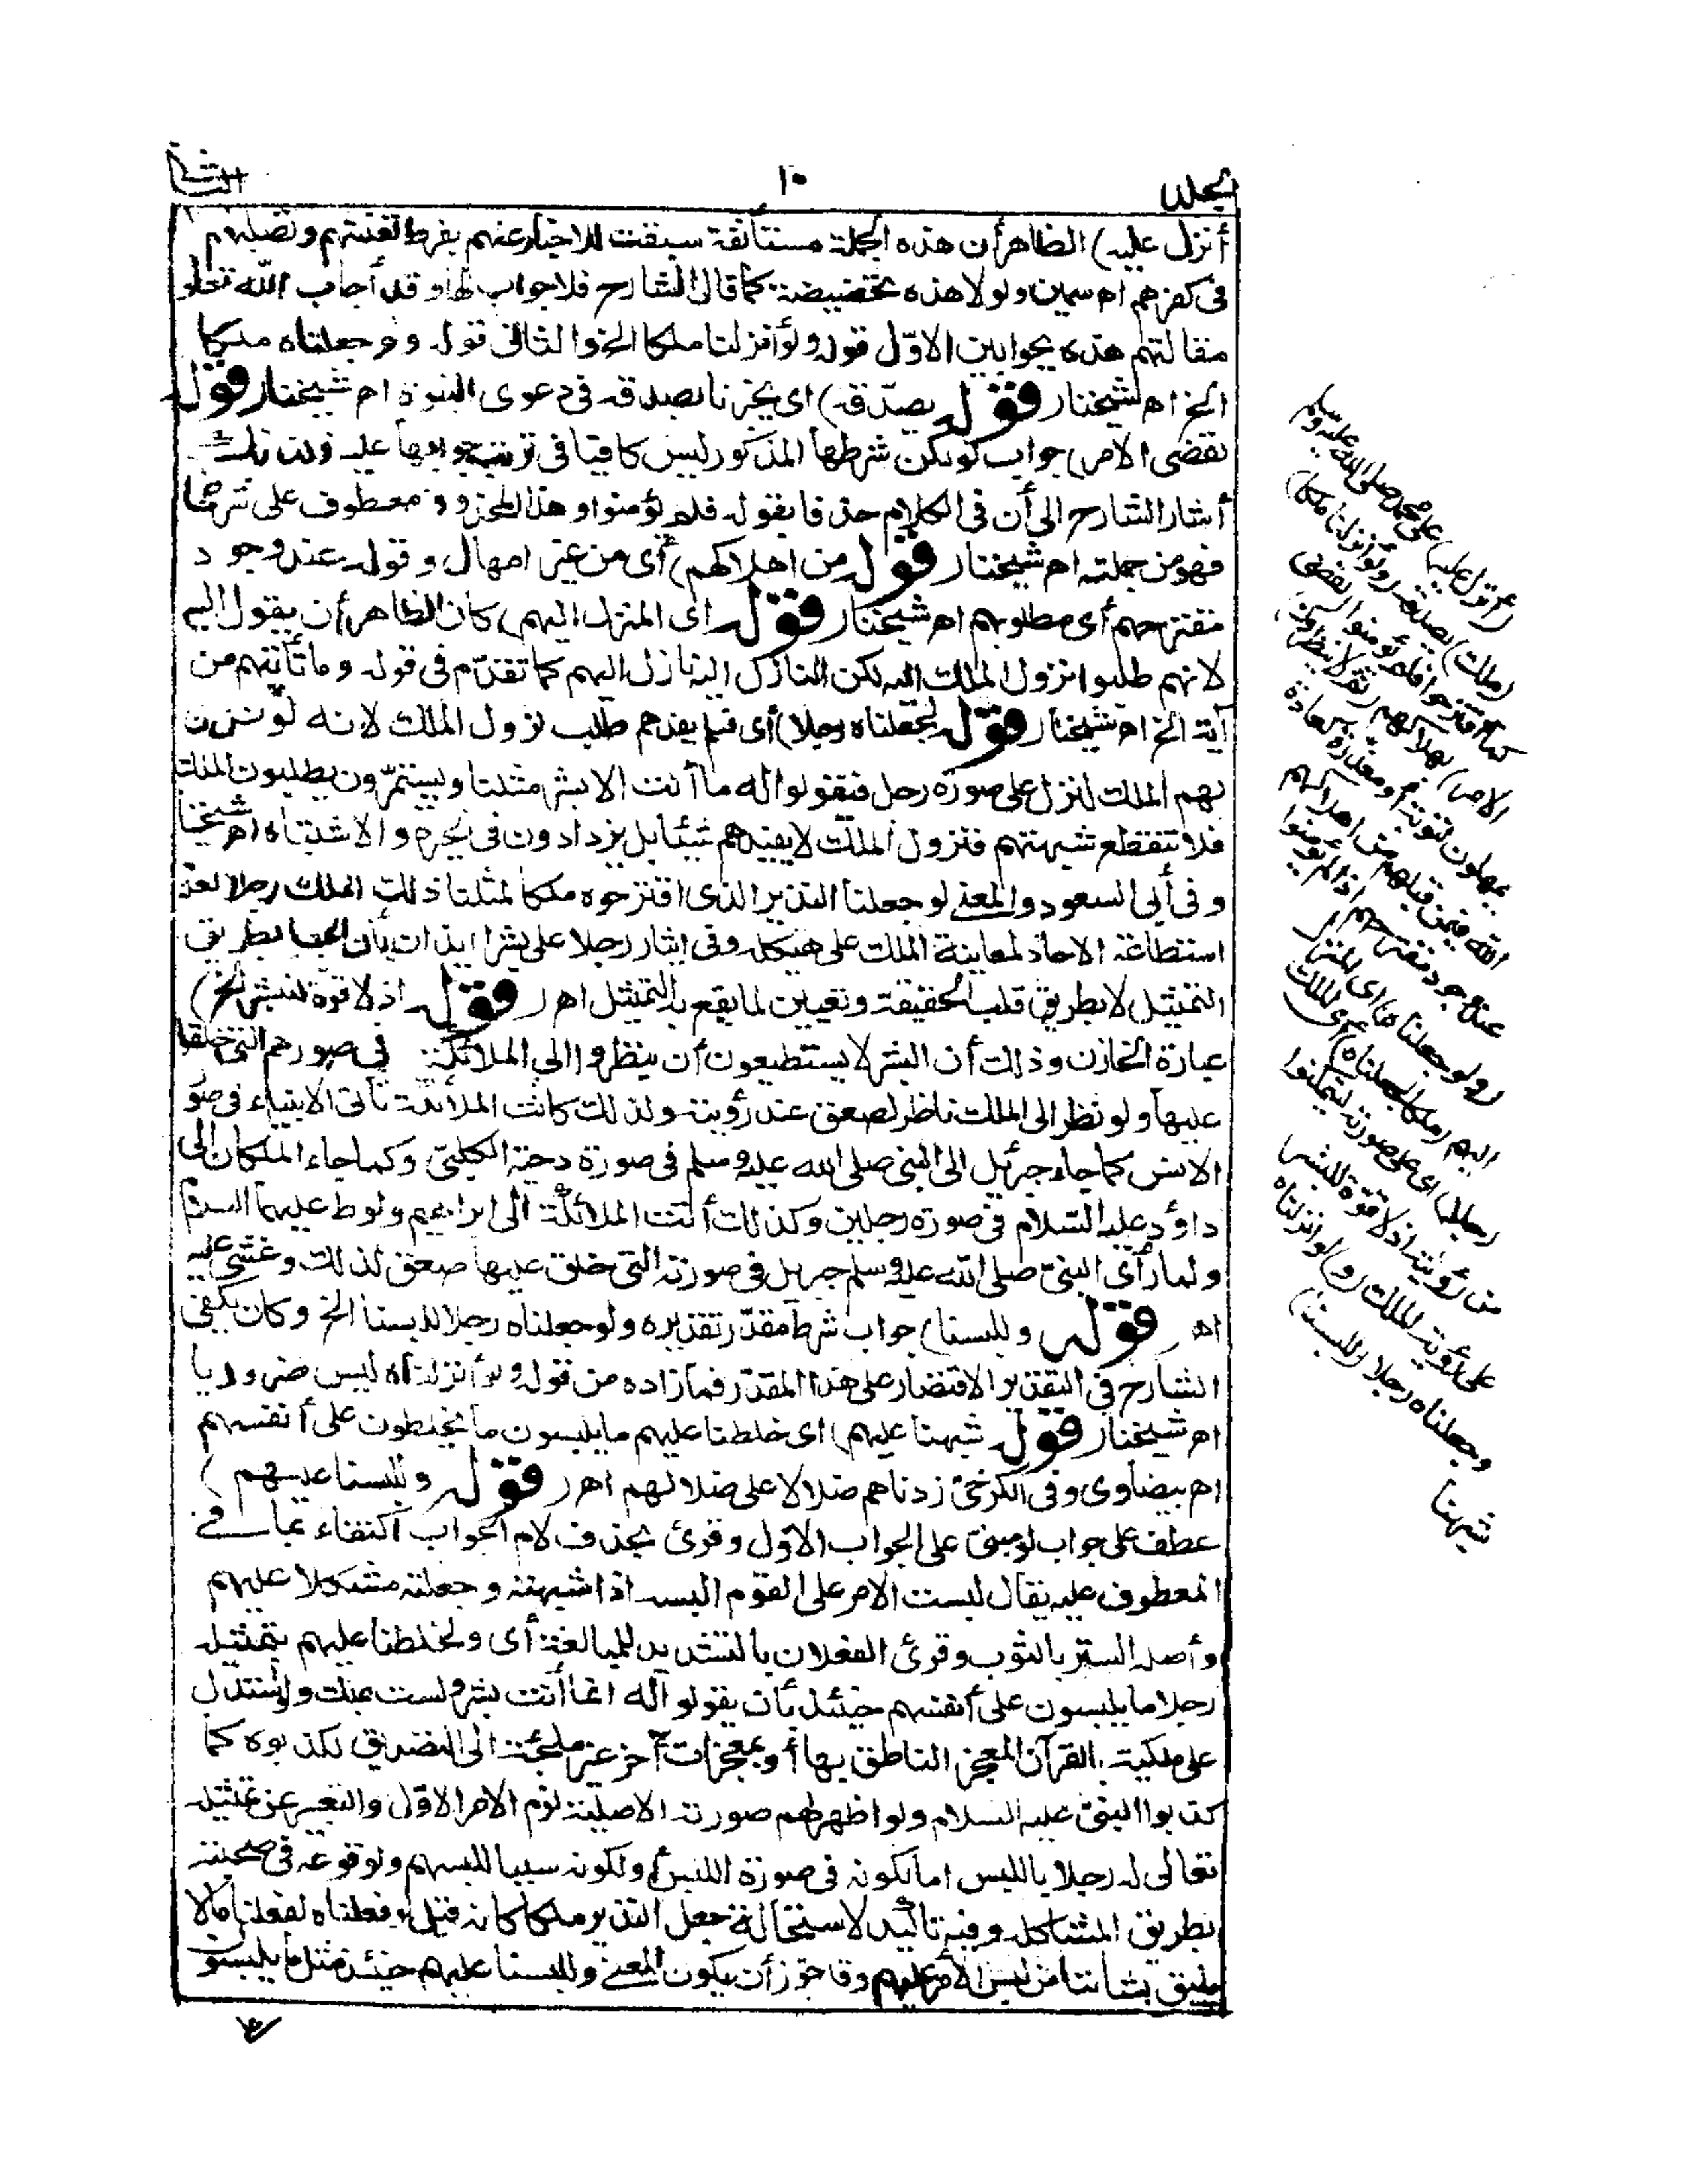 الجلد
١٠
الثاني
أنزل عليه) الظاهر أن هذه الجملة مستأنفة سيقت للاخبار عنهم بفرط تعنتهم وتصلبهم
فى كفرهم اه سمين ولولا هذه تحضيضية كما قال الشارح فلا جواب لها وقد أجاب الله تعالى
مقالتهم هذه بجوابين الاوّل قوله ولو أنزلنا ملكا الخ والثانى قوله ولو جعلناه ملكا
الخ اه شيخنا ر قوله يصدّقه) اى يخبرنا بصدقه فى دعوى النبوة اه شيخنا ر قوله
لقضى الامر) جواب لو لكن شرطها المذكور ليس كافيا فى ترتب جوابها عليه فلذلك
أشار الشارح الى أن فى الكلام حذفا بقوله فلم يؤمنوا وهذا المحذوف معطوف على شرطها
فهو من جملته اه شيخنا ر قوله من اهلاكهم) أى من غير امهال وقوله عند وجود
مقترحهم أى مطلوبهم اه شيخنا ر قوله اى المنزل اليهم) كان الظاهر أن يقول اليه
لانهم طلبوا نزول الملك اليه لكن النازل اليه نازل اليهم كما تقدّم فى قوله وما تأتيهم من
آية الخ اه شيخنا ر قوله لجعلناه رجلا) أى فلم يفدهم طلب نزول الملك لانه لو نزل
لهم الملك لنزل على صورة رجل فيقولوا له ما أنت الا بشر مثلنا ويستمرّون يطلبون الملك
فلا تنقطع شبهتهم فنزول الملك لا يفيدهم شيئا بل يزدادون فى الحيرة والاشتباه اه شيخنا
وفى أبى السعود والمعنى لو جعلنا النذير الذى اقترحوه ملكا لمثلنا ذلك الملك رجلا لعدم
استطاعة الآحاد لمعاينة الملك على هيكله وفى ايثار رجلا على بشرا ايذان بأن الجعل بطريق
التمثيل لا بطريق قلب الحقيقة وتعيين لما يقع به التمثيل اه ر قوله اذ لا قوة للبشر الخ)
عبارة الخازن وذلك أن البشر لا يستطيعون أن ينظروا الى الملائكة فى صورهم التى خلقوا
عليها ولو نظر الى الملك ناظر لصعق عند رؤيته ولذلك كانت الملائكة تأتى الانبياء فى صورة
الانس كما جاء جبرئيل الى النبى صلى الله عليه وسلم فى صورة دحية الكلبى وكما جاء الملكان الى
داؤد عليه السلام فى صورة رجلين وكذلك أتت الملائكة الى ابراهيم ولوط عليهما السلام
ولما رأى النبىّ صلى الله عليه وسلم جبريل فى صورته التى خلق عليها صعق لذلك وغشى عليه
اه ر قوله وللبسنا) جواب شرط مقدّر تقديره ولو جعلناه رجلا للبسنا الخ وكان يكفى
الشارح فى التقدير الاقتصار على هذا المقدّر فما زاده من قوله ولو أنزلناه ليس ضروريا
اه شيخنا ر قوله شبهنا عليهم) اى خلطنا عليهم ما يلبسون ما يخلطون على أنفسهم
اه بيضاوى وفى الكرخىّ زدناهم ضلالا على ضلالهم اه ر قوله وللبسنا عليهم)
عطف على جواب لو مبنى على الجواب الاوّل وقرئ بحذف لام الجواب اكتفاء بما فى
المعطوف عليه يقال لبست الامر على القوم ألبسه اذا شبهته وجعلته مشكلا عليهم
وأصله الستر بالثوب وقرئ الفعلان بالتشديد للمبالغة أى ولخلطنا عليهم بتمثيله
رجلا ما يلبسون على أنفسهم حينئذ بأن يقولوا له انما أنت بشر ولست بملك ولو استدل
على ملكيته بالقرآن المعجز الناطق بها أو بمعجزات أخر غير ملجئة الى التصديق لكذبوه كما
كذبوا النبىّ عليه السلام ولو اظهر لهم صورته الاصلية لزم الامر الاوّل والتعبير عن تمثيله
تعالى له رجلا باللبس اما لكونه فى صورة اللبس أو لكونه سببا للبسهم ولوقوعه فى صحبته
بطريق المشاكلة وفيه تأكيد لاستحالة جعل النذير ملكا كانه قيل لو فعلناه لفعلنا ما لا
يليق بشأننا من لبس الامر عليهم وقد جوّز أن يكون المعنى وللبسنا عليهم حينئذ مثل ما يلبسون
(أنزل عليه) على محمد صلى الله عليه وسلم
(ملك) يصدقه (ولو أنزلنا ملكا)
كما اقترحوا فلم يؤمنوا (لقضى
الامر) بهلاكهم (ثم لا ينظرون)
يمهلون لتوبة أو معذرة كعادة
الله فيمن قبلهم من اهلاكهم
عند وجود مقترحهم اذا لم يؤمنوا
(ولو جعلناه) اى المنزل
اليهم (ملكا لجعلناه) أى الملك
(رجلا) اى على صورته ليتمكنوا
من رؤيته اذ لا قوة للبشر
على رؤية الملك (و) لو أنزلناه
وجعلناه رجلا (وللبسنا)
شبهنا